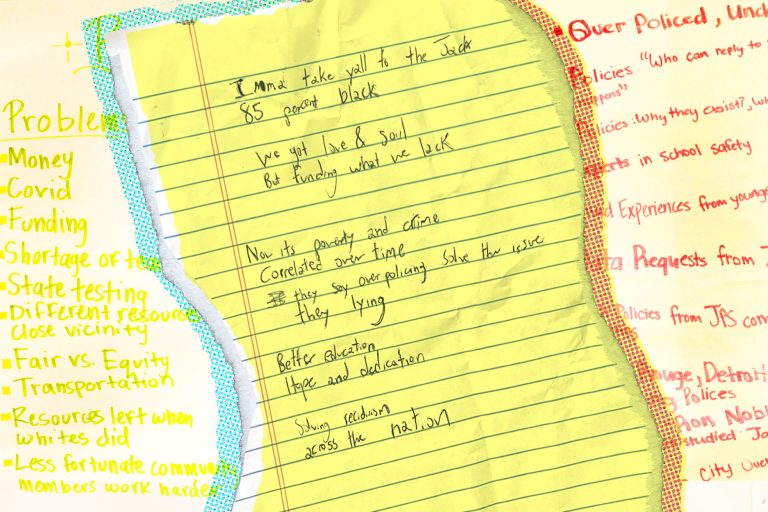 Problem
Money
Covid
Funding
Shortage of tea
State testing
Different resources
close vicinity
Fair vs. Equity
Transportation
Resources left when
whites did
Less fortunate commun
members work harder
Imma take yall to the Jack
85 percent black
We got love & soul
But funding what we lack
Now its poverty and crime
Correlated over time
they say overpolicing solve the issue
they lying
Better education
Hope and dedication
Solving recidivism
across the nation
Over Policed, Und
Policies "Who can reply to
ppens"
licies: Why they exist?, wh
in school safety
Experiences from young
Requests from J
Policies from JPS com
ouge, Detroit
Polices
Nobl
studied Ja
City Over